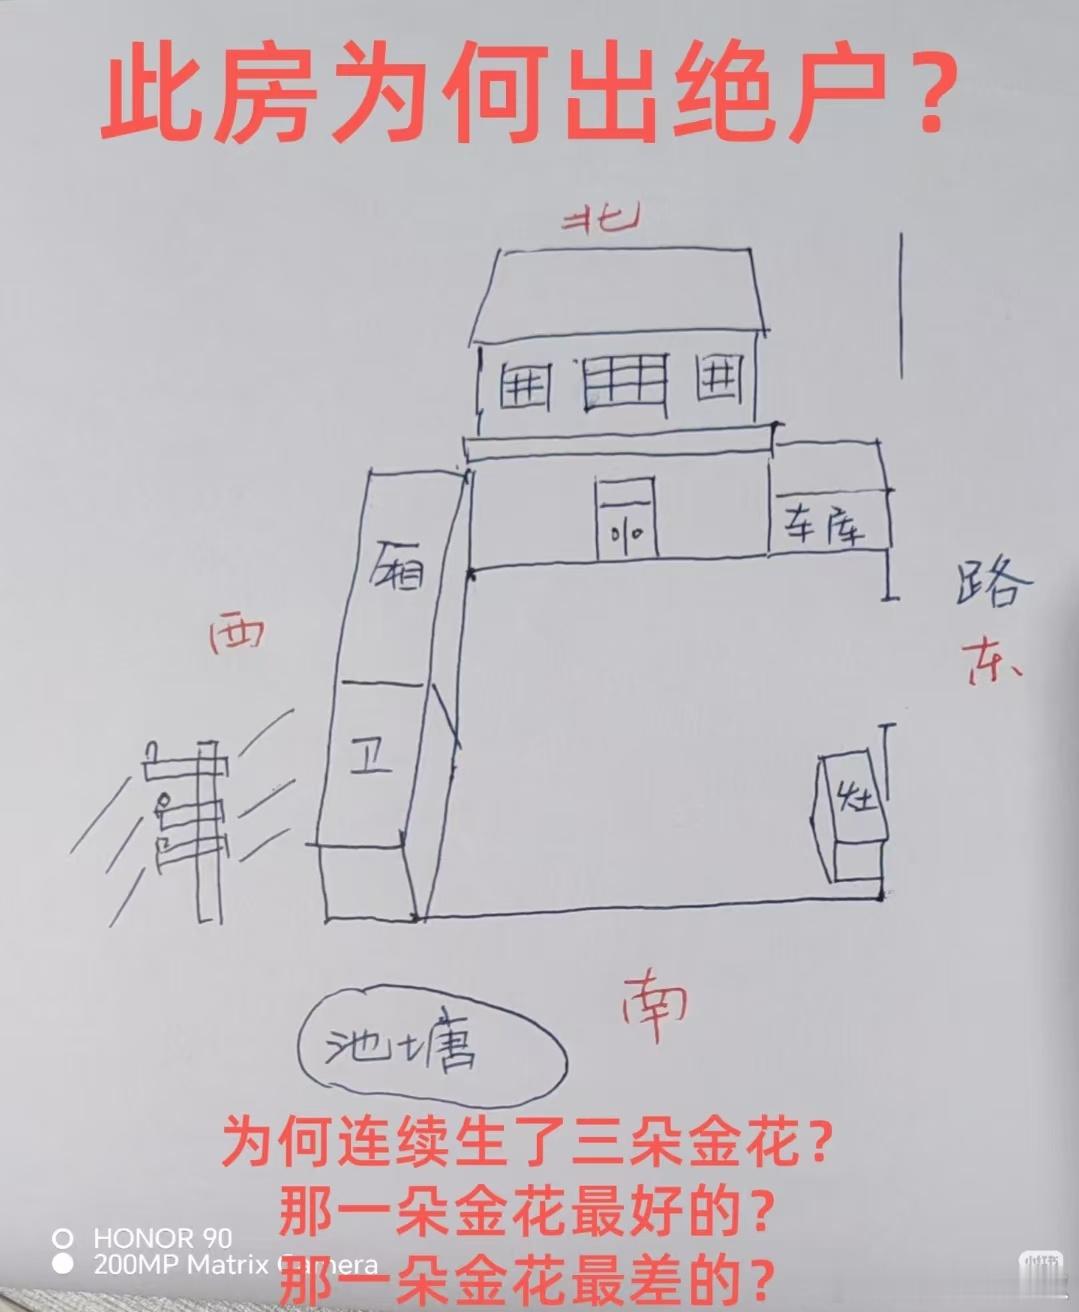 此房为何出绝户？
北
车库
厢
路
西
东、
卫
灶
南
池塘
为何连续生了三朵金花？
那一朵金花最好的？
HONOR 90
200MP Matrix Camera
那一朵金花最差的？
小红书